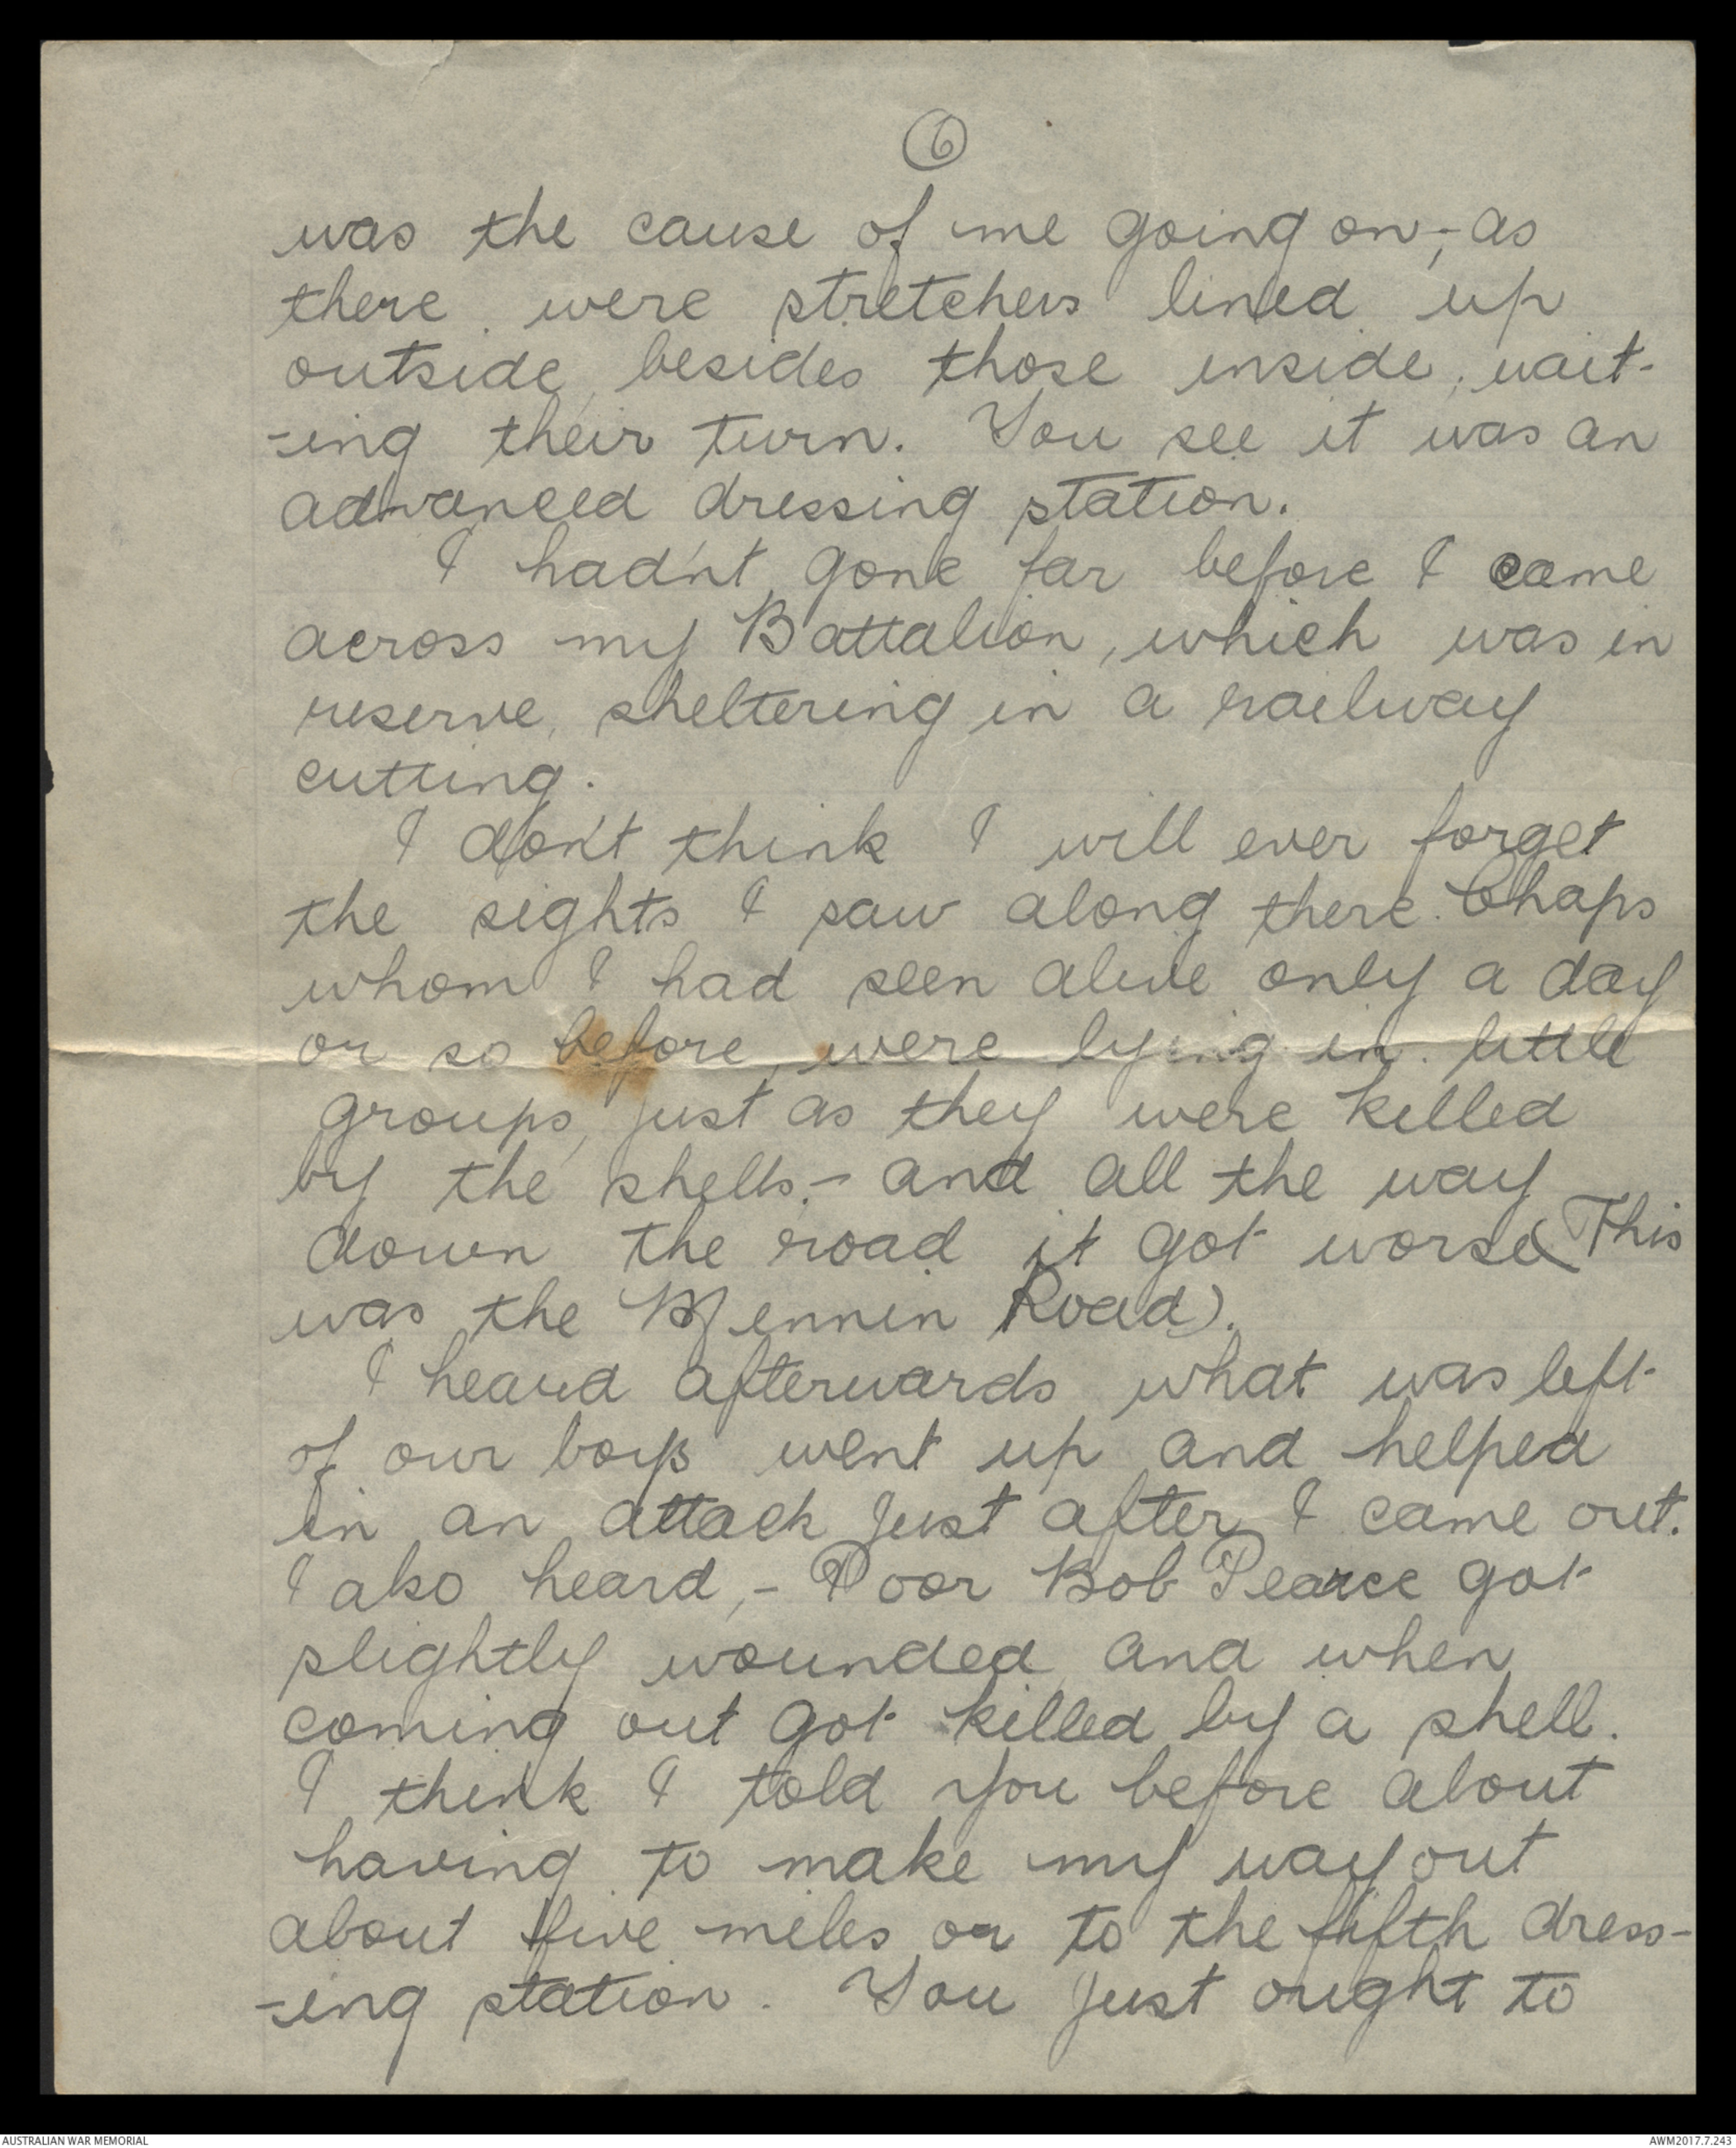 6
was the cause of me going on,- as
there were stretchers lined up
outside, besides those inside, wait-
-ing their turn. You see it was an
advanced dressing station.
I hadn't gone far before I came
across my Battalion, which was in
reserve, sheltering in a railway
cutting.
I don't think I will ever forget
the sights I saw along there. Chaps
whom I had seen alive only a day
or so before, were lying in little
groups, just as they were killed
by the shells,- and all the way
down the road it got worse (This
was the Mennin Road).
I heard afterwards what was left
of our boys went up and helped
in an attack just after I came out.
I also heard,- Poor Bob Pearce got
slightly wounded and when
coming out got killed by a shell.
I think I told you before about
having to make my way out
about five miles or to the fifth dress-
-ing station. You just ought to
AUSTRALIAN WAR MEMORIAL
AWM2017.7.243